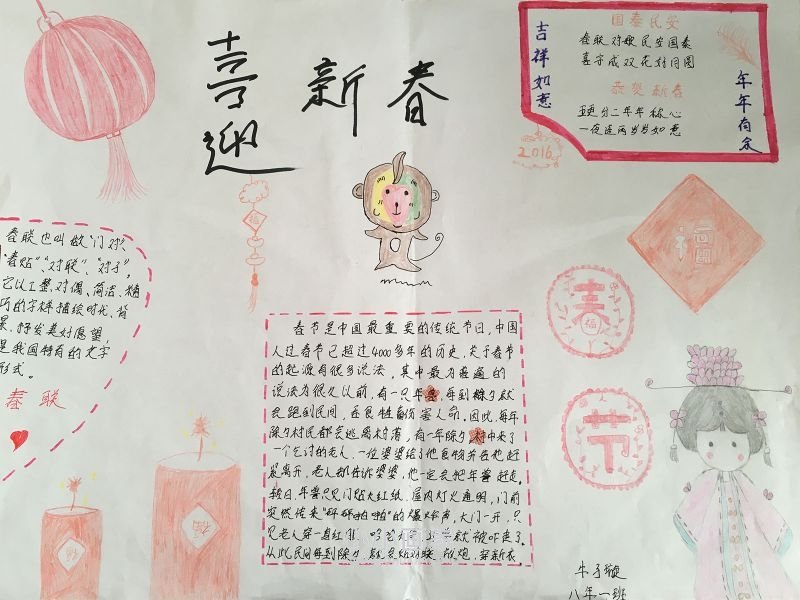 喜迎
新春
吉祥如意
国泰民安
春联对歌民安国泰
喜字成双花好月圆
恭贺新春
五更分二年年称心
一夜连两岁岁如意
年年有余
2016
福
福
春联也叫做"门对"、
"春贴"、"对联"、"对子",
它以工整、对偶、简洁、精
巧的字样描绘时代背
景,抒发美好愿望,
是我国特有的文字
形式。
春联
春
福
节
春节是中国最重要的传统节日,中国
人过春节已超过4000多年的历史,关于春节
的起源有很多说法,其中最为普遍的
说法为很久以前,有一只年兽,每到除夕就
会跑到民间,吞食牲畜伤害人命,因此,每年
除夕村民都会逃离村落,有一年除夕,村中来了
一个乞讨的老人,一位婆婆给了他食物并告他赶
紧离开,老人却告诉婆婆,他一定会把年兽赶走。
较日,年兽只见门贴大红纸,屋内灯火通明,门前
突然传来"砰砰啪啪"的爆炸声,大门一开,只
见老人穿一真红
就被吓走了。
从此民间每到除夕,
贴对联、放炮、穿新衣
福
福
牛子璇
八年一班